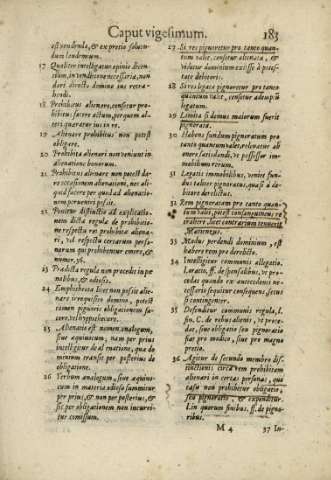 Caput vigesimum. 183
est vendendo, & ex pretio soluen-
dum laudimium.
17 Qualiter intelligatur opinio dicen-
tium, in venditione necessaria, non
dari directo domino ius retra-
hendi.
18 Prohibitus alienare, censetur pro-
hibitus facere actum, per quem al-
teri quæratur ius in re.
19 Alienare prohibitus non potest
obligare.
20 Prohibita alienari non veniunt in
alienatione bonorum.
21 Prohibitus alienare non potest da-
re occasionem alienationi, nec ali-
quid facere per quod ad alienatio-
nem perueniri possit.
22 Ponitur distinctio ad explicatio-
nem dictæ regulæ de prohibitio-
ne respectu rei prohibitæ aliena-
ri, vel respectu certarum perso-
narum qui prohibentur emere, &
numer. 36.
23 Prædicta regula non procedit in pœ-
nalibus, & odiosis.
24 Emphyteuta licet non possit aliena-
re irrequisito domino, potest
tamen pignoris obligationem fa-
cere, vel hypothecare.
25 Alienatio est nomen analogum,
siue æquiuocum; nam per prius
intelligitur de ea ratione, qua do-
minium transit per posterius de
obligatione.
26 Verbum analogum, siue æquiuo-
cum in materia odiosa sumitur
per prius, & non per posterius, &
sic per obligationem non incurri-
tur comissum.
27 Si res pignoretur pro tanto quan-
tum valet, censetur alienata, &
videtur dominium exisse à potes-
tate debitoris.
28 Si res legata pignoretur pro tanto
quantum valet, censetur ademptū
legatum.
29 Limita si domus maiorum fuerit
pignorata.
30 Habens fundum pignoratum pro
tanto quantum valet, releuatur ab
onere satisdandi, vt possessor im-
mobilium rerum.
31 Legatis immobilibus, venit fun-
dus taliter pignoratus, quasi à de-
bitore derelictus.
32 Rem pignoratam pro tanto quan-
tum valet, potest consanguineus re-
trahere, licet contrarium tenuerit
Matienzus.
33 Modus perdendi dominium, est
habere rem pro derelicto.
34 Intelligitur communis allegatio
L. oratio, ff. de sponsalibus, vt pro-
cedat quando ex antecedenti ne-
cessario sequitur consequens, secus
si contingenter.
35 Defenditur communis regula, l.
fin. C. de rebus alienis, vt proce-
dat, siue obligatio seu pignoratio
fiat pro modico, siue pro magno
pretio.
36 Agitur de secundo membro dis-
tinctionis circa rem prohibitam
alienari in certas personas, quo
casu non prohibetur obligatio,
seu pignoratio, & expenditur
l. in quorum finibus, ff. de pigno-
ribus.
M 4 37 In-